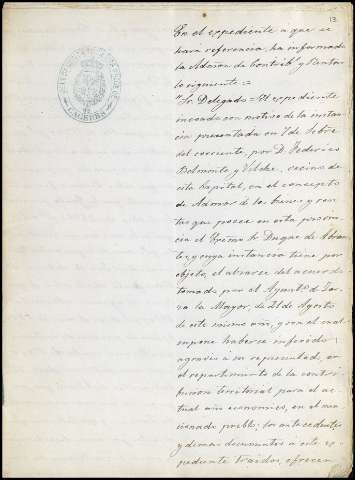 13
En el expediente a que se
hara referencia, ha informado
la Admon de Contrib.s y Rentas
lo siguiente:=
"Sr. Delegado = El expediente
incoado con motivo de la instan-
cia presentada en 7 de Setbre
del corriente, por D. Federico
Belmonte y Vilches, vecino de
esta Capital, en el concepto
de Admor de los bienes y ren-
tas que posee en esta provin-
cia el Excmo Sr. Duque de Abran-
tes, y cuya instancia tiene por
objeto, el alzarse del acuerdo
tomado por el Ayunt.o de Zar-
za la Mayor, de 21 de Agosto
de este mismo año, y con el cual
supone haberse inferido
agravio a su representado, en
el repartimiento de la contri-
bucion territorial para el ac-
tual año economico, en el men-
cionado pueblo; los antecedentes
y demas documentos a este ex-
pediente traidos, ofrecen
CACERES